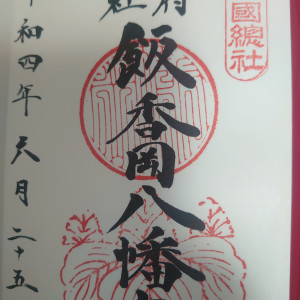 國總社
府社
飯香岡八幡
令和四年六月二十五